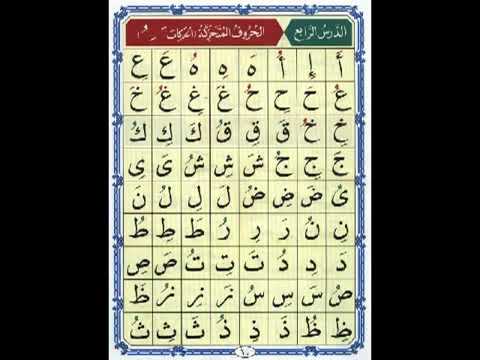 الدَّرْسُ الرَّابِعُ الحُرُوفُ المُتَحَرِّكَةُ (الحركات ـَ ـِ ـُ)
أَ إِ أُ هَ هِ هُ عَ عِ
عُ حَ حِ حُ غَ غِ غُ خَ
خِ خُ قَ قِ قُ كَ كِ كُ
جَ جِ جُ شَ شِ شُ ىَ ىِ
ىُ ضَ ضِ ضُ لَ لِ لُ نَ
نِ نُ رَ رِ رُ طَ طِ طُ
دَ دِ دُ تَ تِ تُ صَ صِ
صُ سَ سِ سُ زَ زِ زُ ظَ
ظِ ظُ ذَ ذِ ذُ ثَ ثِ ثُ
١٠